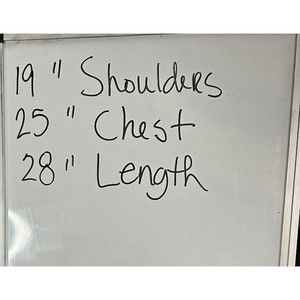 19" Shoulders
25" Chest
28" Length